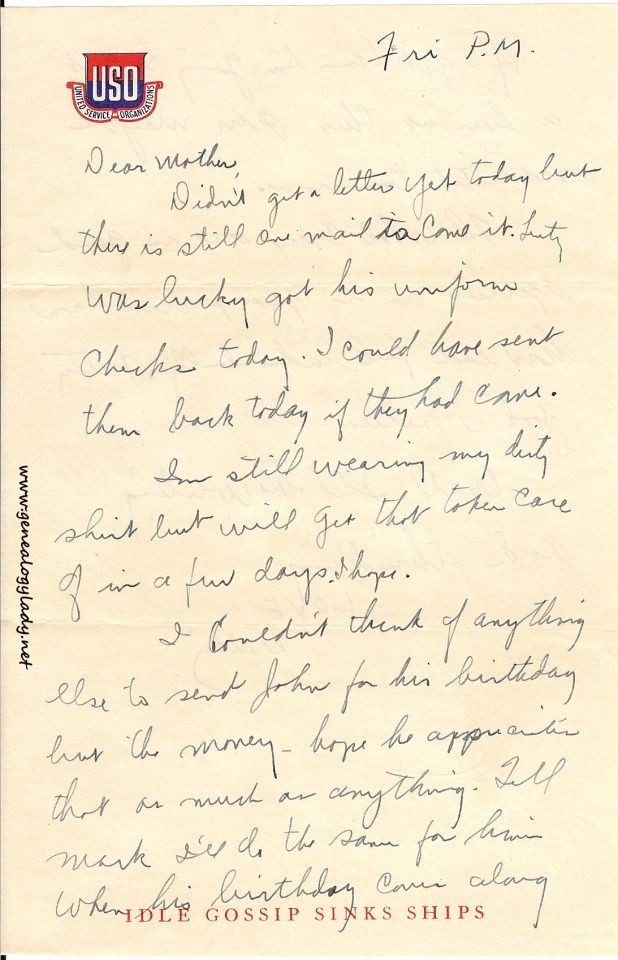 Fri P.M.
USO
UNITED SERVICE ORGANIZATIONS
Dear Mother,
Didn't get a letter yet today but
there is still one mail to come it. Lentz
was lucky got his uniform
checks today. I could have sent
them back today if they had come.
Im still wearing my dirty
shirt but will get that taken care
of in a few days. I hope.
I Couldn't think of anything
else to send John for his birthday
but the money - hope he appreciates
that as much as anything. Tell
Mark I'll do the same for him
When his birthday comes along
IDLE GOSSIP SINKS SHIPS
www.genealogylady.net